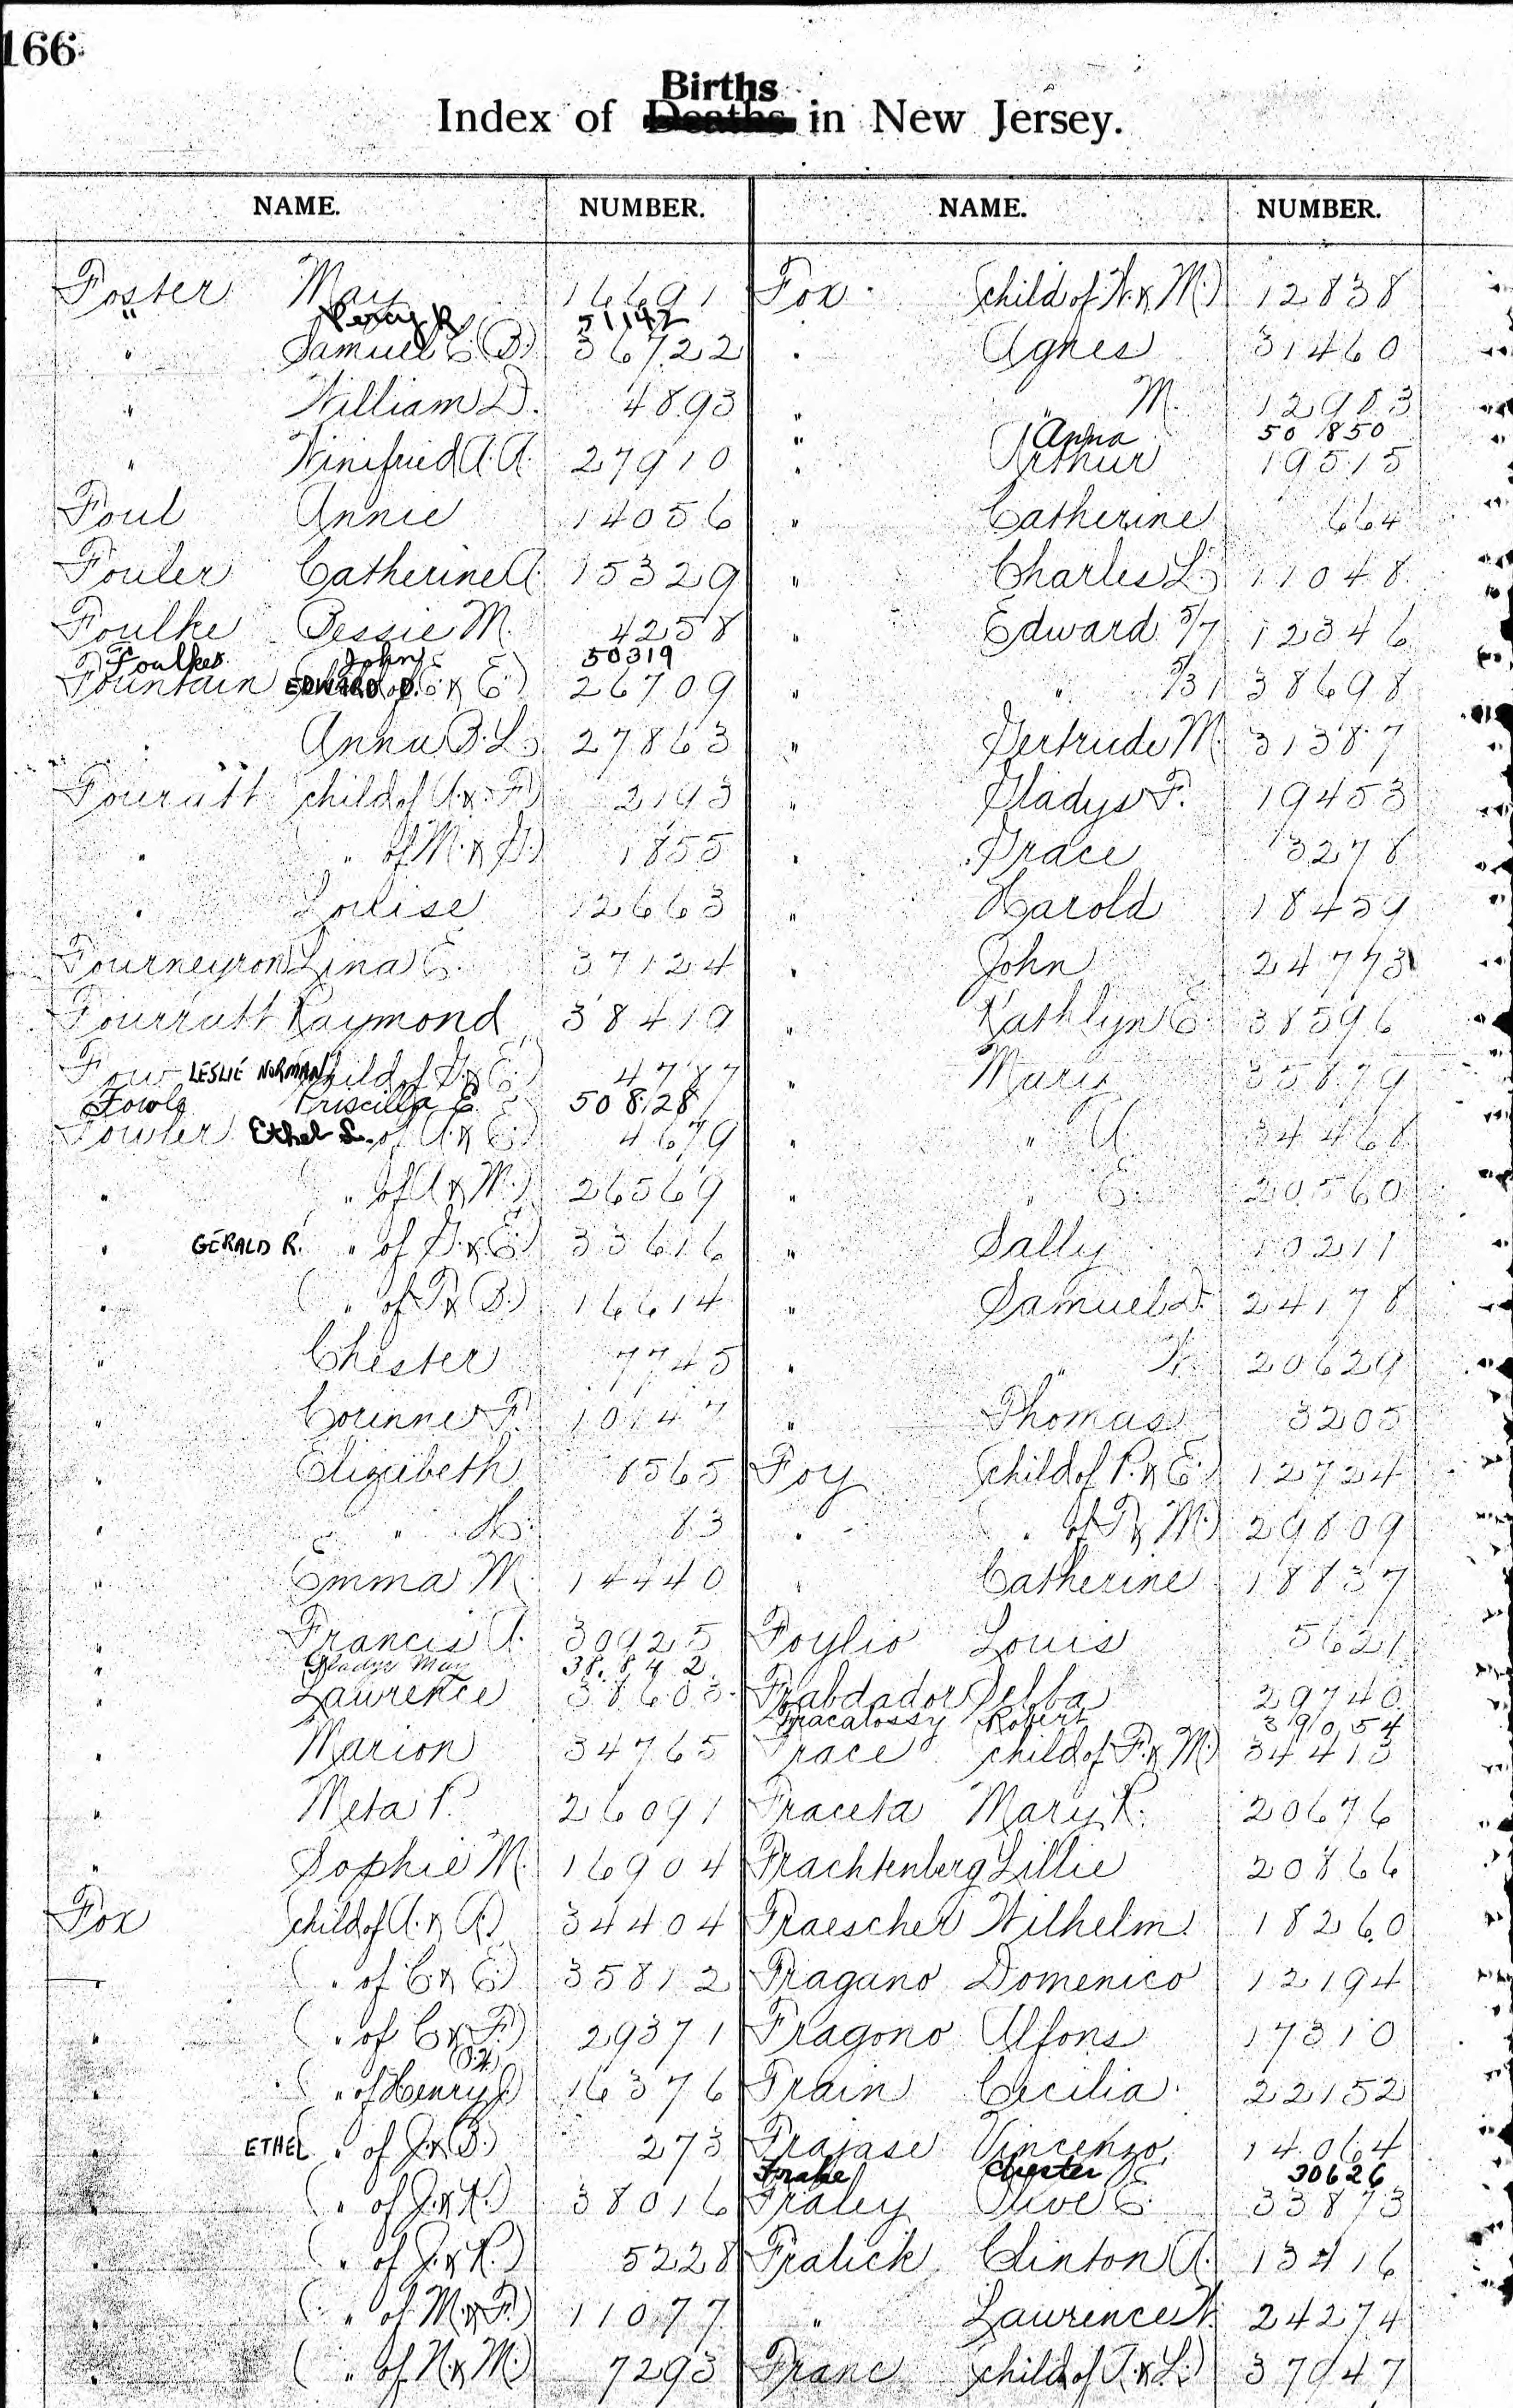 166
Births
Index of Deaths in New Jersey.
NAME. NUMBER.
Foster May 16691
" Percy R 51142
" Samuel E. (B.) 36722
" William D. 4893
" Winifried A. A. 27910
Foul Annie 14056
Fouler Catherine A. 15329
Foulke Bessie M. 4258
Foulkes John 50319
Fountain EDWARD D. (child of E. & E.) 26709
" Anna B. L. 27863
Fouratt (child of A. & F.) 2193
" " of M. & G.) 1855
" Louise 12663
Fourneyron Lina E. 37124
Fourratt Raymond 38419
Fow LESLIE NORMAN (child of G. & E.) 4787
Fowle Priscilla E. 50828
Fowler Ethel L. of A. & E.) 4679
" " of A. & M.) 26569
" GERALD R. " of G. & E.) 33616
" ( " of T. & B.) 16614
" Chester 7745
" Corinne F. 10147
" Elizabeth 8565
" " H. 83
" Emma M. 14440
" Francis A. 30925
" Gladys May 38842
" Lawrence 38603
" Marion 34765
" Meta P. 26091
" Sophie M. 16904
Fox (child of A. & A.) 34404
" ( " of C. & E.) 35812
" ( " of C. & F.) 29371
" ( " of Henry J.) 16376
" ETHEL ( " of J. & B.) 273
" ( " of J. & K.) 38016
" ( " of J. & R.) 5228
" ( " of M. & F.) 11077
" ( " of N. & M.) 7293
NAME. NUMBER.
Fox (child of W. & M.) 12838
" Agnes 31460
" " M. 12983
" Anna 50850
" Arthur 19515
" Catherine 664
" Charles L. 11048
" Edward 5/7 12346
" " 5/31 38698
" Gertrude M. 31387
" Gladys F. 19453
" Grace 3278
" Harold 18459
" John 24773
" Kathlyn E. 38596
" Mary 35879
" " A. 34468
" " E. 20560
" Sally 10211
" Samuel D. 24178
" " W. 20629
" Thomas 3205
Foy (child of P. & E.) 12724
" ( " of T. & M.) 29809
" Catherine 18837
Foylio Louis 5621
Frabdador Selba 29740
Fracalossy Robert 39054
Frace (child of F. & M.) 34413
Fraceta Mary R. 20676
Frachtenberg Lillie 20866
Fraescher Wilhelm 18260
Fragano Domenico 12194
Fragono Alfons 17310
Frain Cecilia 22152
Frajase Vincenzo 14064
Frake Chester 30626
Fraley Olive E. 33873
Fralick Clinton A. 13416
" Lawrence W. 24274
Franc (child of T. & L.) 37947